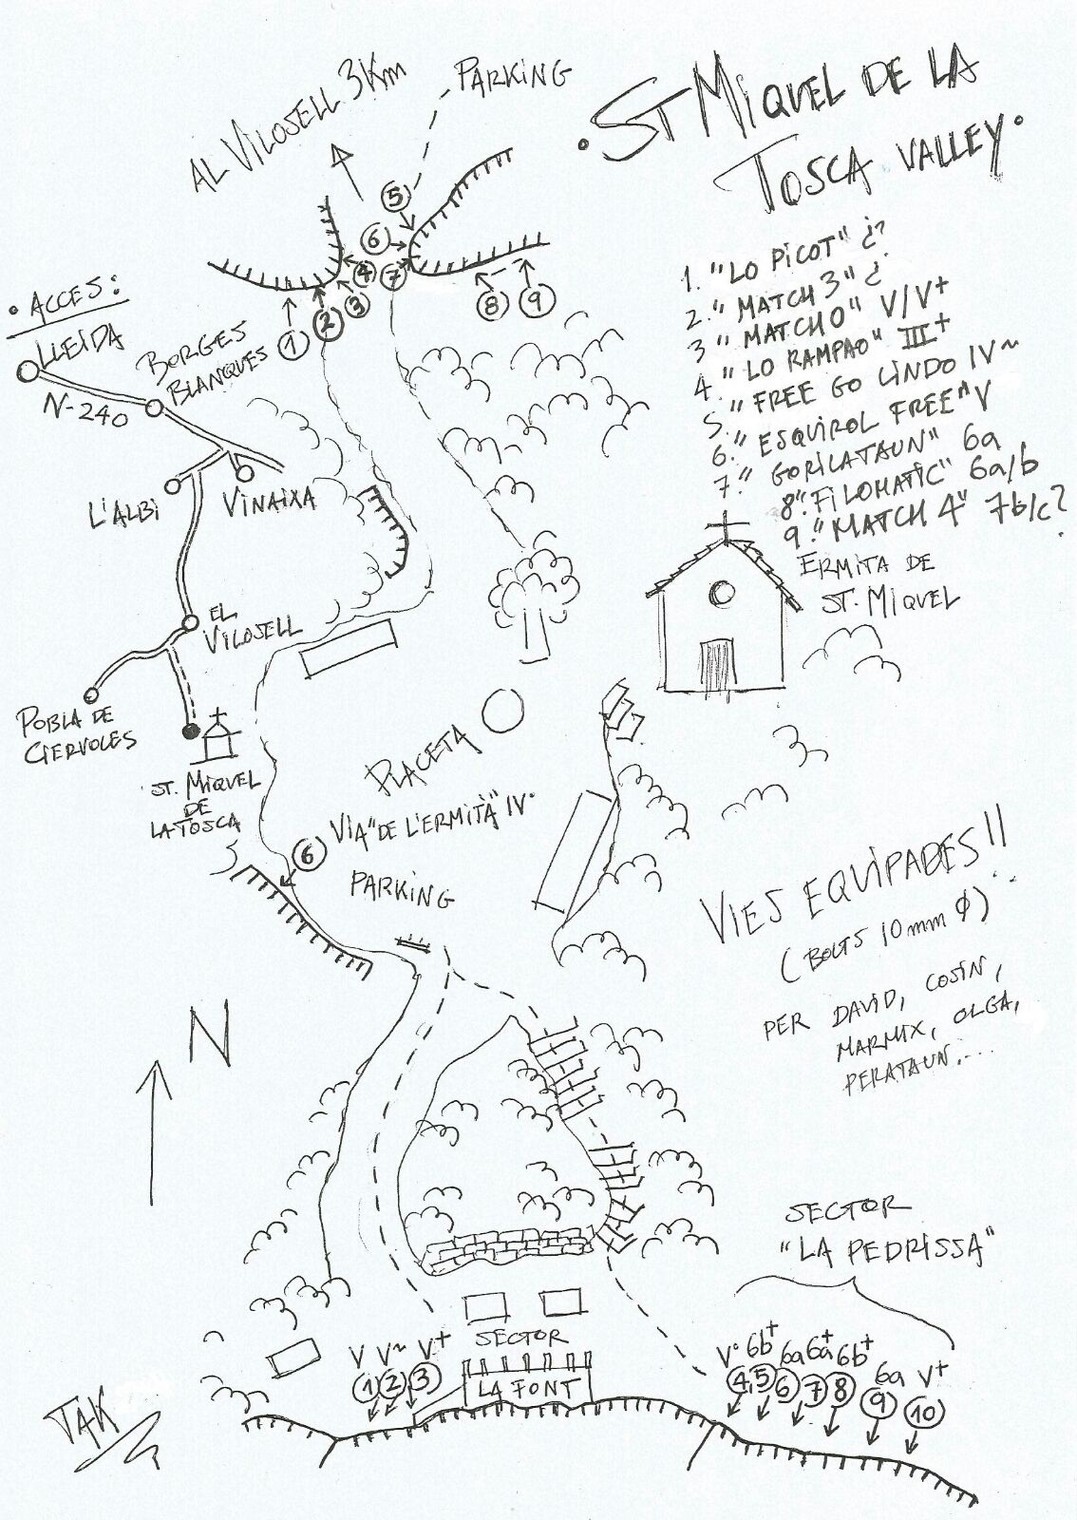 AL VILOSELL 3Km
PARKING
ST MIQUEL DE LA
TOSCA VALLEY
5
6
4
7
3
2
1
8
9
1. "LO PICOT" ¿?
2. "MATCH 3" ¿
3 "MATCH 0" V/V+
4. "LO RAMPAO" III+
5. "FREE GO LINDO IV~
6. "ESQUIROL FREE" V
7. "GORILATAUN" 6a
8 "FILOMATIC" 6a/b
9. "MATCH 4" 7b/c?
ERMITA DE
ST. MIQUEL
ACCES:
LLEIDA
BORGES
BLANQUES
N-240
L'ALBI
VINAIXA
EL
VILOSELL
POBLA DE
CIERVOLES
ST. MIQUEL
DE
LA TOSCA
PLACETA
6 VIA "DE L'ERMITA" IV°
PARKING
VIES EQUIPADES!!
(BOLTS 10mm Ø)
PER DAVID, COSIN,
MARMIX, OLGA,
PERATAUN...
N
SECTOR
"LA PEDRISSA"
SECTOR
LA FONT
V V~ V+
1 2 3
V° 6b+ 6a 6a+ 6b+ 6a V+
4 5 6 7 8 9 10
TAK